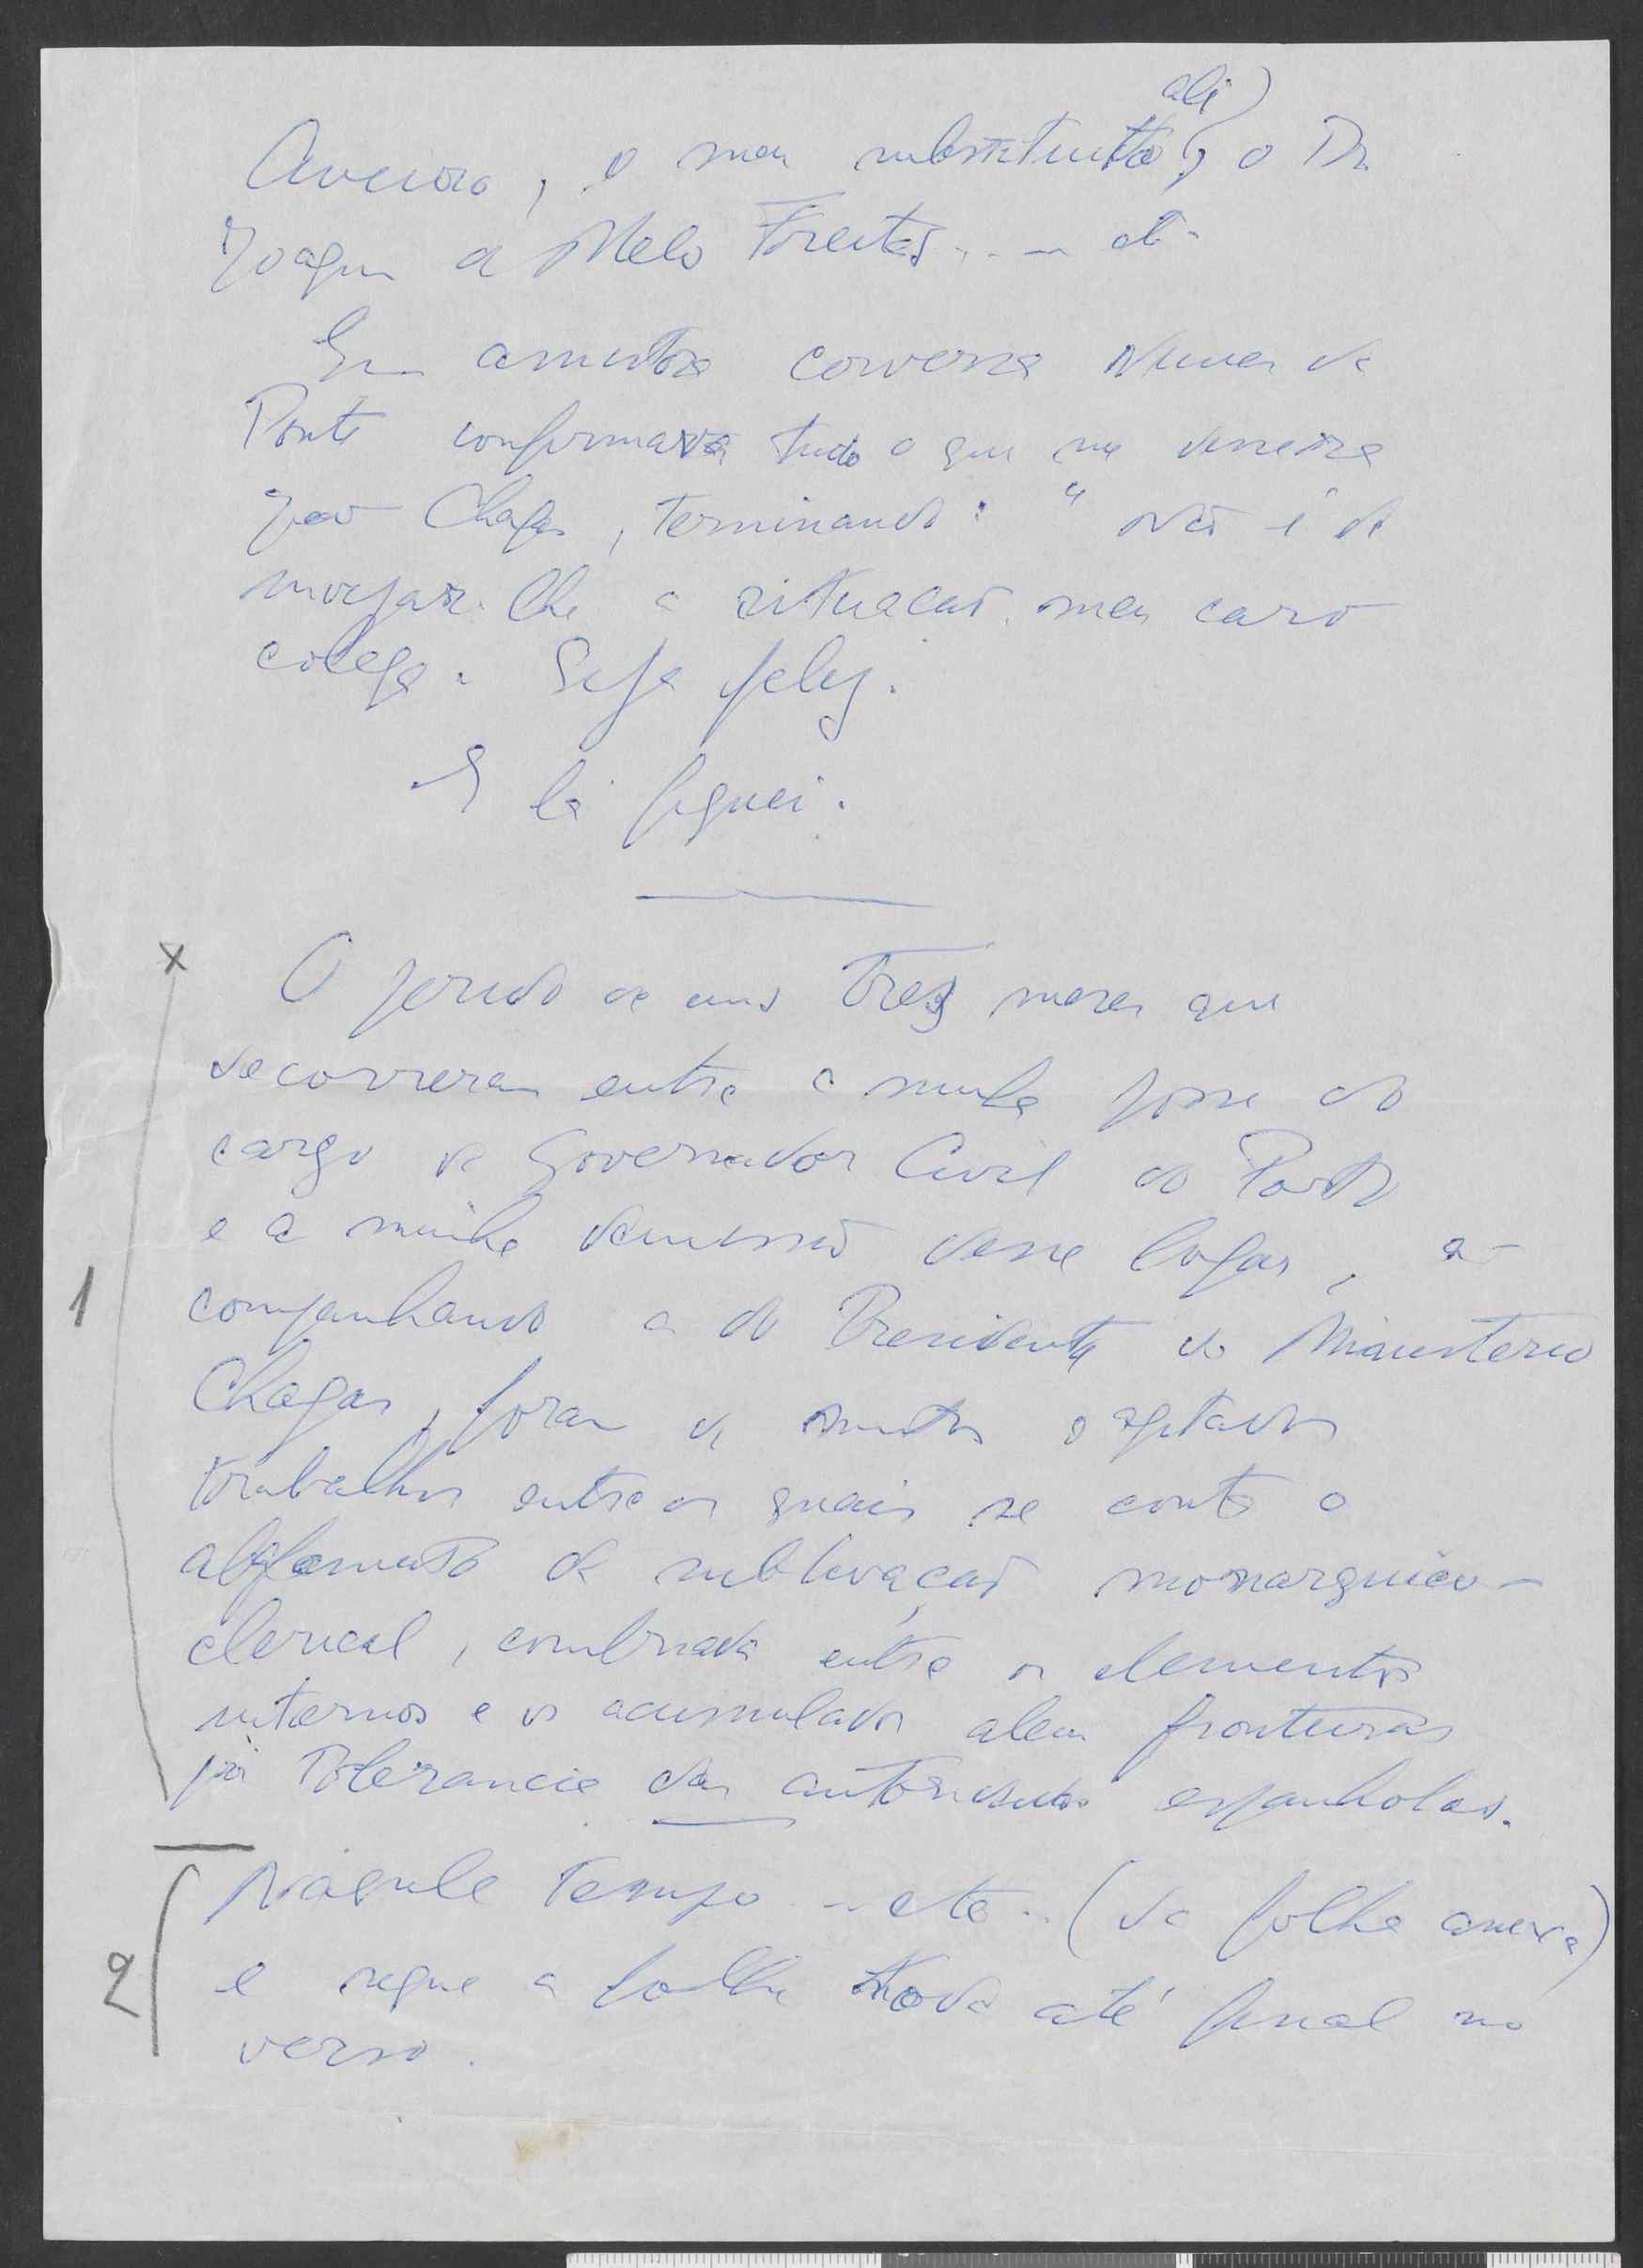 ali)
Aveiro, o meu substituto, o Dr.
Joaquim de Melo Freitas... etc.
Em amistosa conversa Nunes da
Ponte confirmava tudo o que me dissera
João Chagas, terminando: " Não é de
invejar-lhe a situação, meu caro
colega. Seja feliz.
E lá fiquei.
O periodo de uns tres meses que
decorreram entre a minha posse do
cargo de Governador Civil do Porto
e a minha demissão desse logar, a-
companhando a do Presidente do Ministerio
Chagas, foram de muitos e agitados
trabalhos entre os quais se conta o
de sublevação monarquico-
clerical, combinada entre os elementos
internos e os acumulados alem fronteiras
pela tolerancia das autoridades espanholas.
Naquele tempo ... etc.. (da folha anexa)
e segue a folha toda até final no
verso.
1
2
x